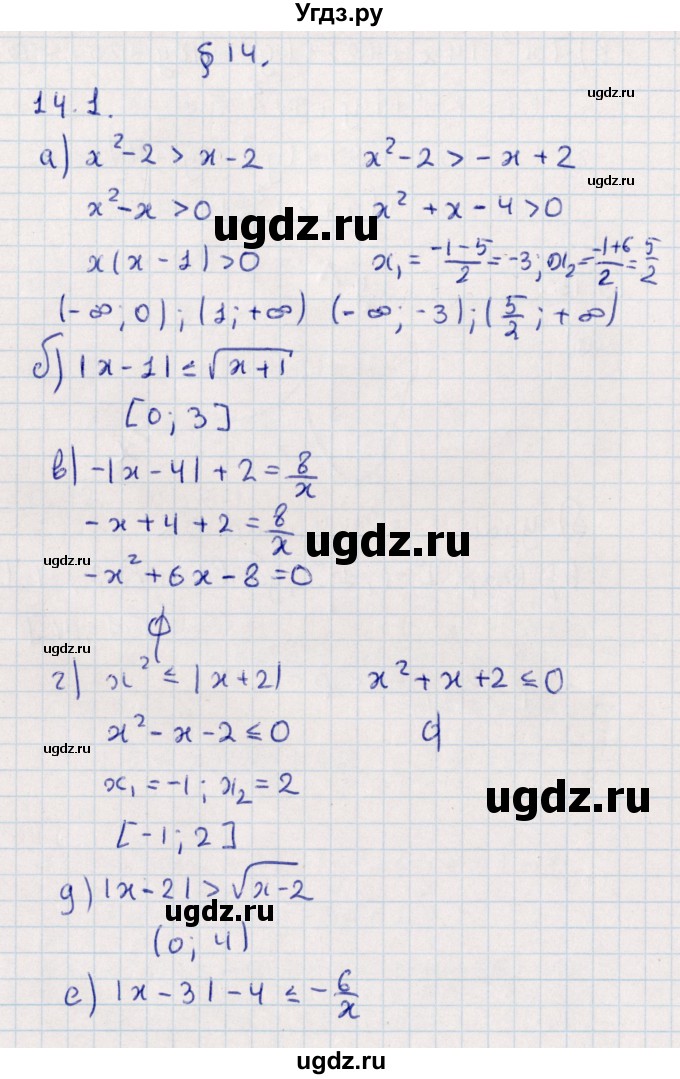 Угдз.ру
§ 14.
ugdz.ru
14.1.
а) x²-2 > x-2    x²-2 > -x+2
ugdz.ru
x²-x > 0    x² + x - 4 > 0
ugdz.ru
x(x-1) > 0    x₁ = (-1-5)/2 = -3; x₂ = (-1+6)/2 = 5/2
(-∞; 0); (1; +∞)    (-∞; -3); (5/2; +∞)
б) |x-1| ≤ √(x+1)
[0; 3]
в) -|x-4| + 2 = 8/x
-x+4+2 = 8/x
ugdz.ru
ugdz.ru
-x²+6x-8=0
ф
ugdz.ru
г) x² ≤ |x+2|    x²+x+2 ≤ 0
x²-x-2 ≤ 0
ugdz.ru
x₁ = -1; x₂ = 2
ugdz.ru
[-1; 2]
д) |x-2| > √(x-2)
ugdz.ru
(0; 4)
е) |x-3| - 4 ≤ -6/x
ugdz.ru